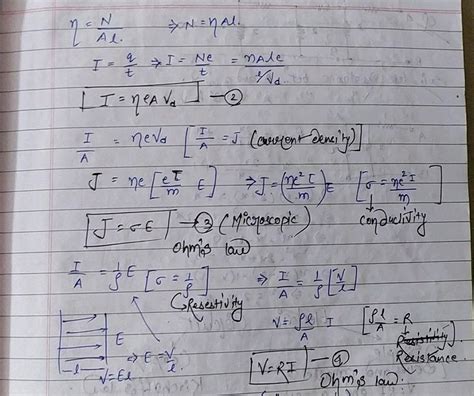 η = N/Al. ⇒ N = ηAl.
I = q/t ⇒ I = Ne/t = ηAle/l/Vd
[I = ηeAVd] — ②
I/A = ηeVd [I/A = J (current density)]
J = ηe [eτ/m E] ⇒ J = (ηe²τ/m) E [σ = ηe²τ/m]
conductivity
[J = σE] — ③ (Microscopic
Ohm's law)
I/A = 1/ρ E [σ = 1/ρ] ⇒ I/A = 1/ρ [V/l]
Resestivity
V = ρl/A I [ρl/A = R]
Resistance.
E ⇒ E = V/l.
l
V = El
[V = RI] — ④
Ohm's law.